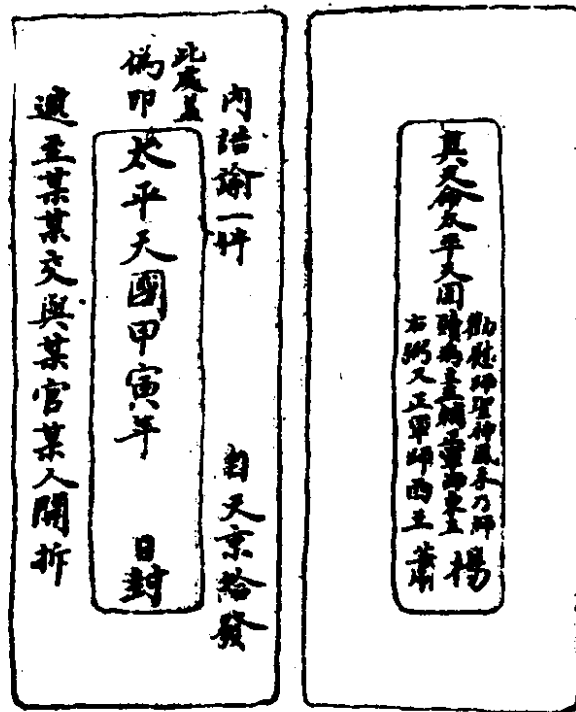 真天命太平天囯
勸慰師聖神風禾乃師
贖病主左輔正軍師東王
楊
右弼又正軍師西王
蕭
內誥諭一件
自天京給發
此處蓋
偽印
太平天國甲寅年
日封
遞至某某交與某官某人開拆